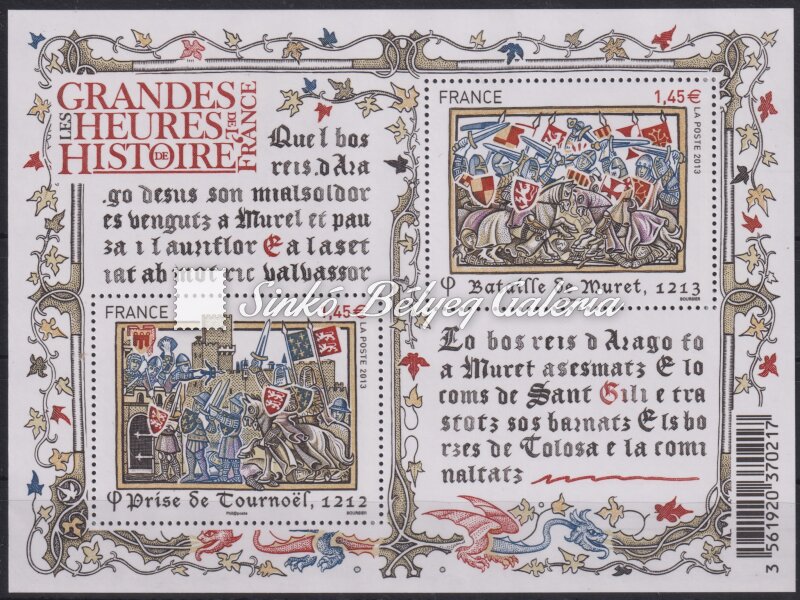 LES GRANDES
HEURES
DE L'
HISTOIRE
DE
FRANCE
Quel bos
reis.d Ara
go desus son mialsoldor
es vengutz a Murel et pau
za i l auriflor E a la set
iat ab mot ric valvassor
FRANCE 1,45€
LA POSTE 2013
Bataille de Muret, 1213
BOURSIER
Sinkó Bélyeg Galéria
FRANCE 1,45€
LA POSTE 2013
Prise de Tournoël, 1212
Phil@poste BOURSIER
Lo bos reis d Arago fo
a Muret asesmatz E lo
coms de Sant Gili e tra
stotz sos barnatz Els bor
zes de Tolosa e la comi
naltatz
3 561920 370217